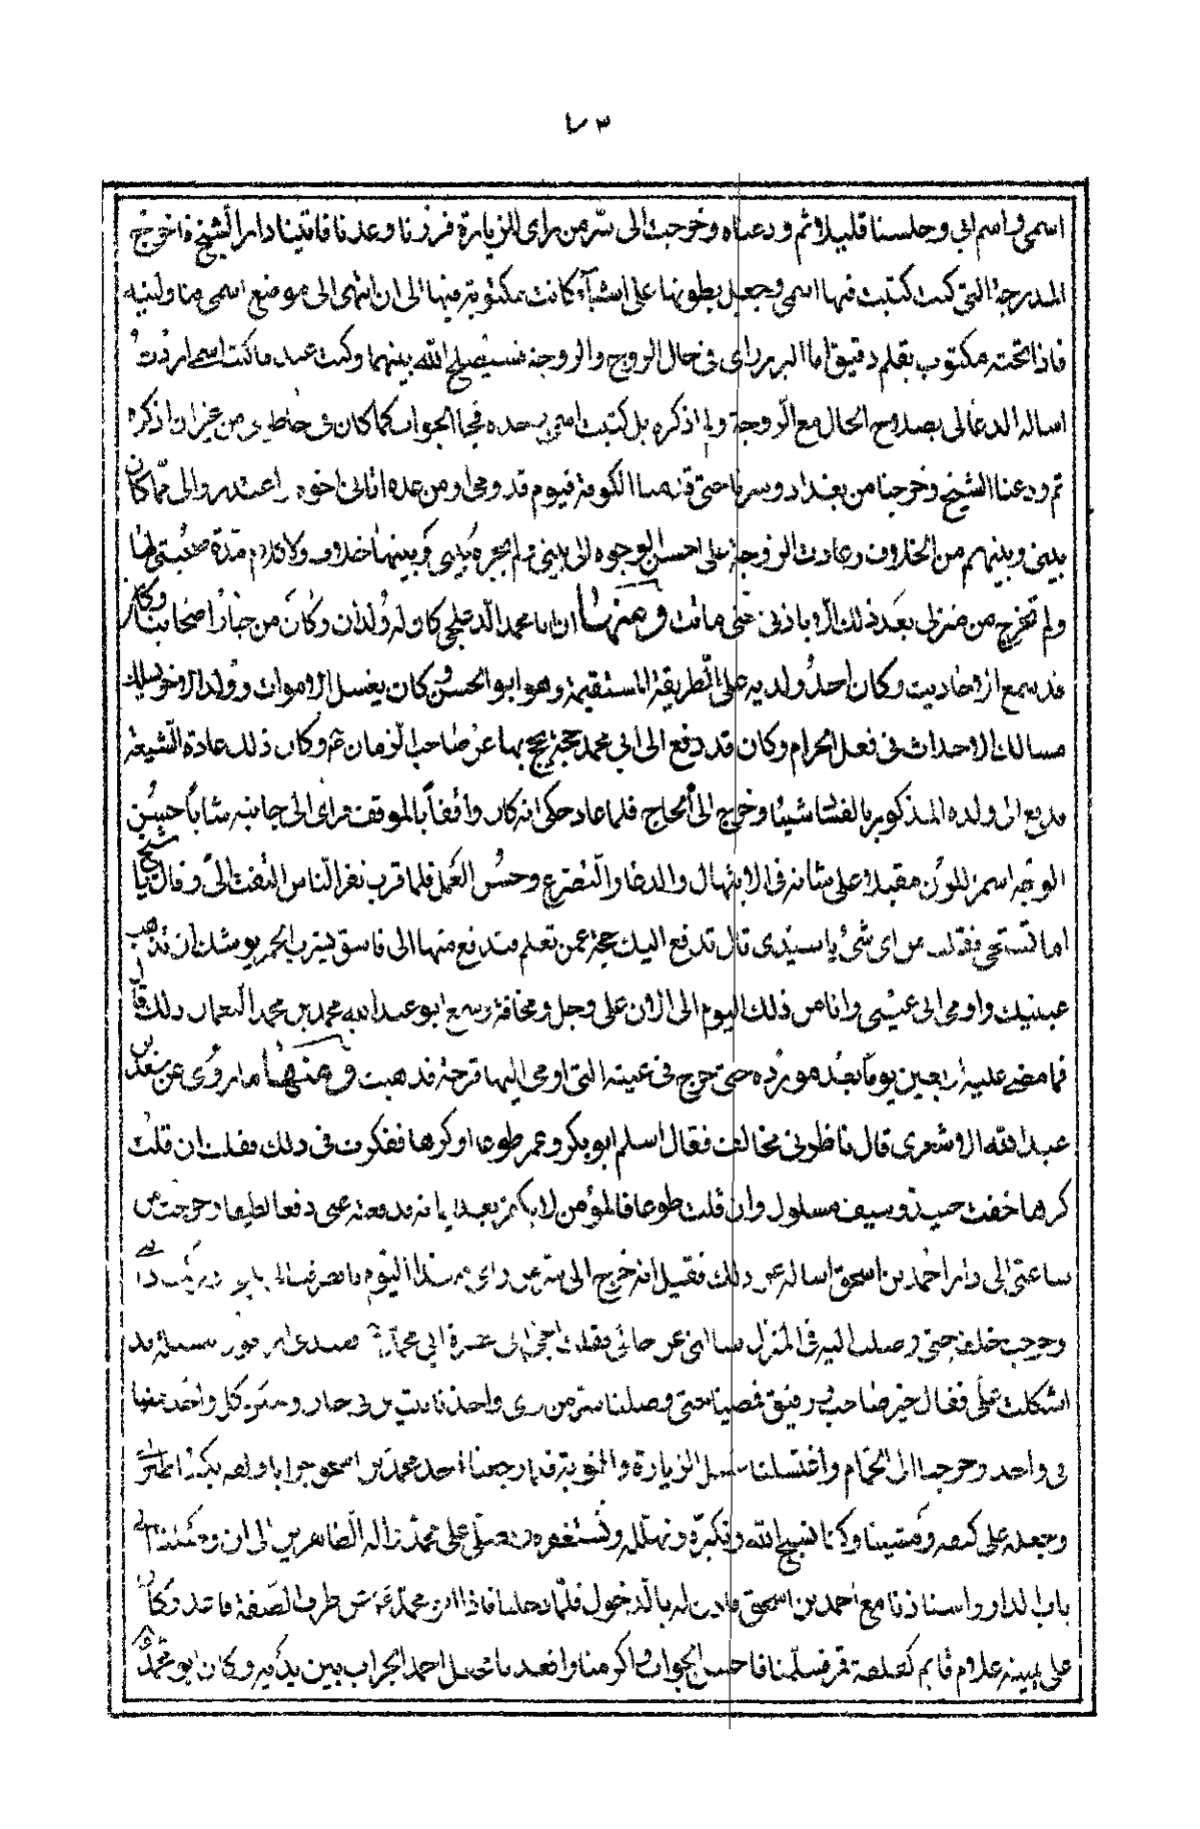 ٧٣
اسمى واسم ابى وجلسنا قليلا ثم ودعناه وخرجت الى سرّ من راى للزيارة فزرنا وعدنا فاتينا دار الشيخ فاخرج
المدرجة التى كنت كتبت فيها اسمى وجعل يطويها على اشيآء كانت مكتوبة فيها الى ان انتهى الى موضع اسمى فناولنيه
فاذا تحته مكتوب بقلم دقيق اما الزرارى فى حال الزوج والزوجة فسيصلح الله بينهما وكنت عند ما كتبت اسمى اردت
اساله الدعا لى بصلاح الحال مع الزوجة ولم اذكره بل كتبت اسمى وحده فجا الجواب كما كان فى خاطرى من غير ان اذكره
ثم ودعنا الشيخ وخرجنا من بغداد وسرنا حتى قدمنا الكوفة فيوم قدومى او من غده اتانى اخوه اعتذروا الى مما كان
بينى وبينهم من الخلاف وعادت الزوجة على احسن الوجوه الى بيتى ولم يجر بينى وبينها خلاف ولا كلام مدة صحبتى لها
ولم تخرج من منزلى بعد ذلك الا باذنى حتى ماتت ومنها ان ابا محمد الدعلجى كان له ولدان وكان من خيار اصحابنا وكان
قد سمع الاحاديث وكان احد ولديه على الطريقة المستقيمة وهو ابو الحسن كان يغسل الاموات وولد الاخر يسلك
مسالك الاحداث فى فعل الحرام وكان قد دفع الى ابى محمد حجة يحج بها عن صاحب الزمان عم وكان ذلك عادة الشيعة
فدفع الى ولده المذكور بالفساد شيئا وخرج الى الحاج فلما عاد حكى انه كان واقفا بالموقف فراى الى جانبه شابا حسن
الوجه اسمر اللون مقبلا على شانه فى الابتهال والدعا والتضرع وحسن العمل فلما قرب نفر الناس التفت الىّ وقال يا شيخ
اما تستحى فقلت من اى شئ يا سيدى قال تدفع اليك حجة عمن تعلم فتدفع منها الى فاسق يشرب الخمر يوشك ان تذهب
عينيك واومى الى عينى وانا من ذلك اليوم الى الان على وجل ومخافة وسمع ابو عبد الله محمد بن محمد النعمان ذلك قال
فما مضى عليه اربعين يوما بعد مورده حتى خرج فى عينه التى اومى اليها قرحة فذهبت ومنها ما روى عن سعد بن
عبد الله الاشعرى قال ناظرنى مخالف فقال اسلم ابو بكر وعمر طوعا او كرها ففكرت فى ذلك فقلت ان قلت
كرها خفت حينئذ وسيف مسلول وان قلت طوعا فالمؤمن لا يكفر بعد ايمانه فدفعته عنى دفعا لطيفا وخرجت من
ساعتى الى دار احمد بن اسحق اساله عن ذلك فقيل انه خرج الى سر من راى هذا اليوم فانصرفت الى
وخرجت خلفه حتى وصلت اليه فى المنزل فسالنى عن حالى فقلت اجى الى حضرة ابى محمد
اشكلت على فقال خير صاحب ورفيق فمضينا حتى وصلنا سر من راى واخذنا بيتين فى خان وسكن كل واحد منا
فى واحد وخرجنا الى الحمام واغتسلنا غسل الزيارة والتوبة فلما رجعنا اخذ احمد بن اسحق جرابا ولفه بكساء طبرى
وجعله على كتفه ومشينا وكنا نسبح الله ونكبره ونهلله ونستغفره ونصلى على محمد واله الطاهرين الى ان وصلنا الى
باب الدار واستاذنا مع احمد بن اسحق فاذن له بالدخول فلما دخلنا فاذا ابو محمد ع على طرف الصفة قاعد وكان
على يمينه غلام قايم كفلقة قمر فسلمنا فاحسن الجواب واكرمنا واقعدنا فجعل احمد الجراب بين يديه وكان ابو محمد ع